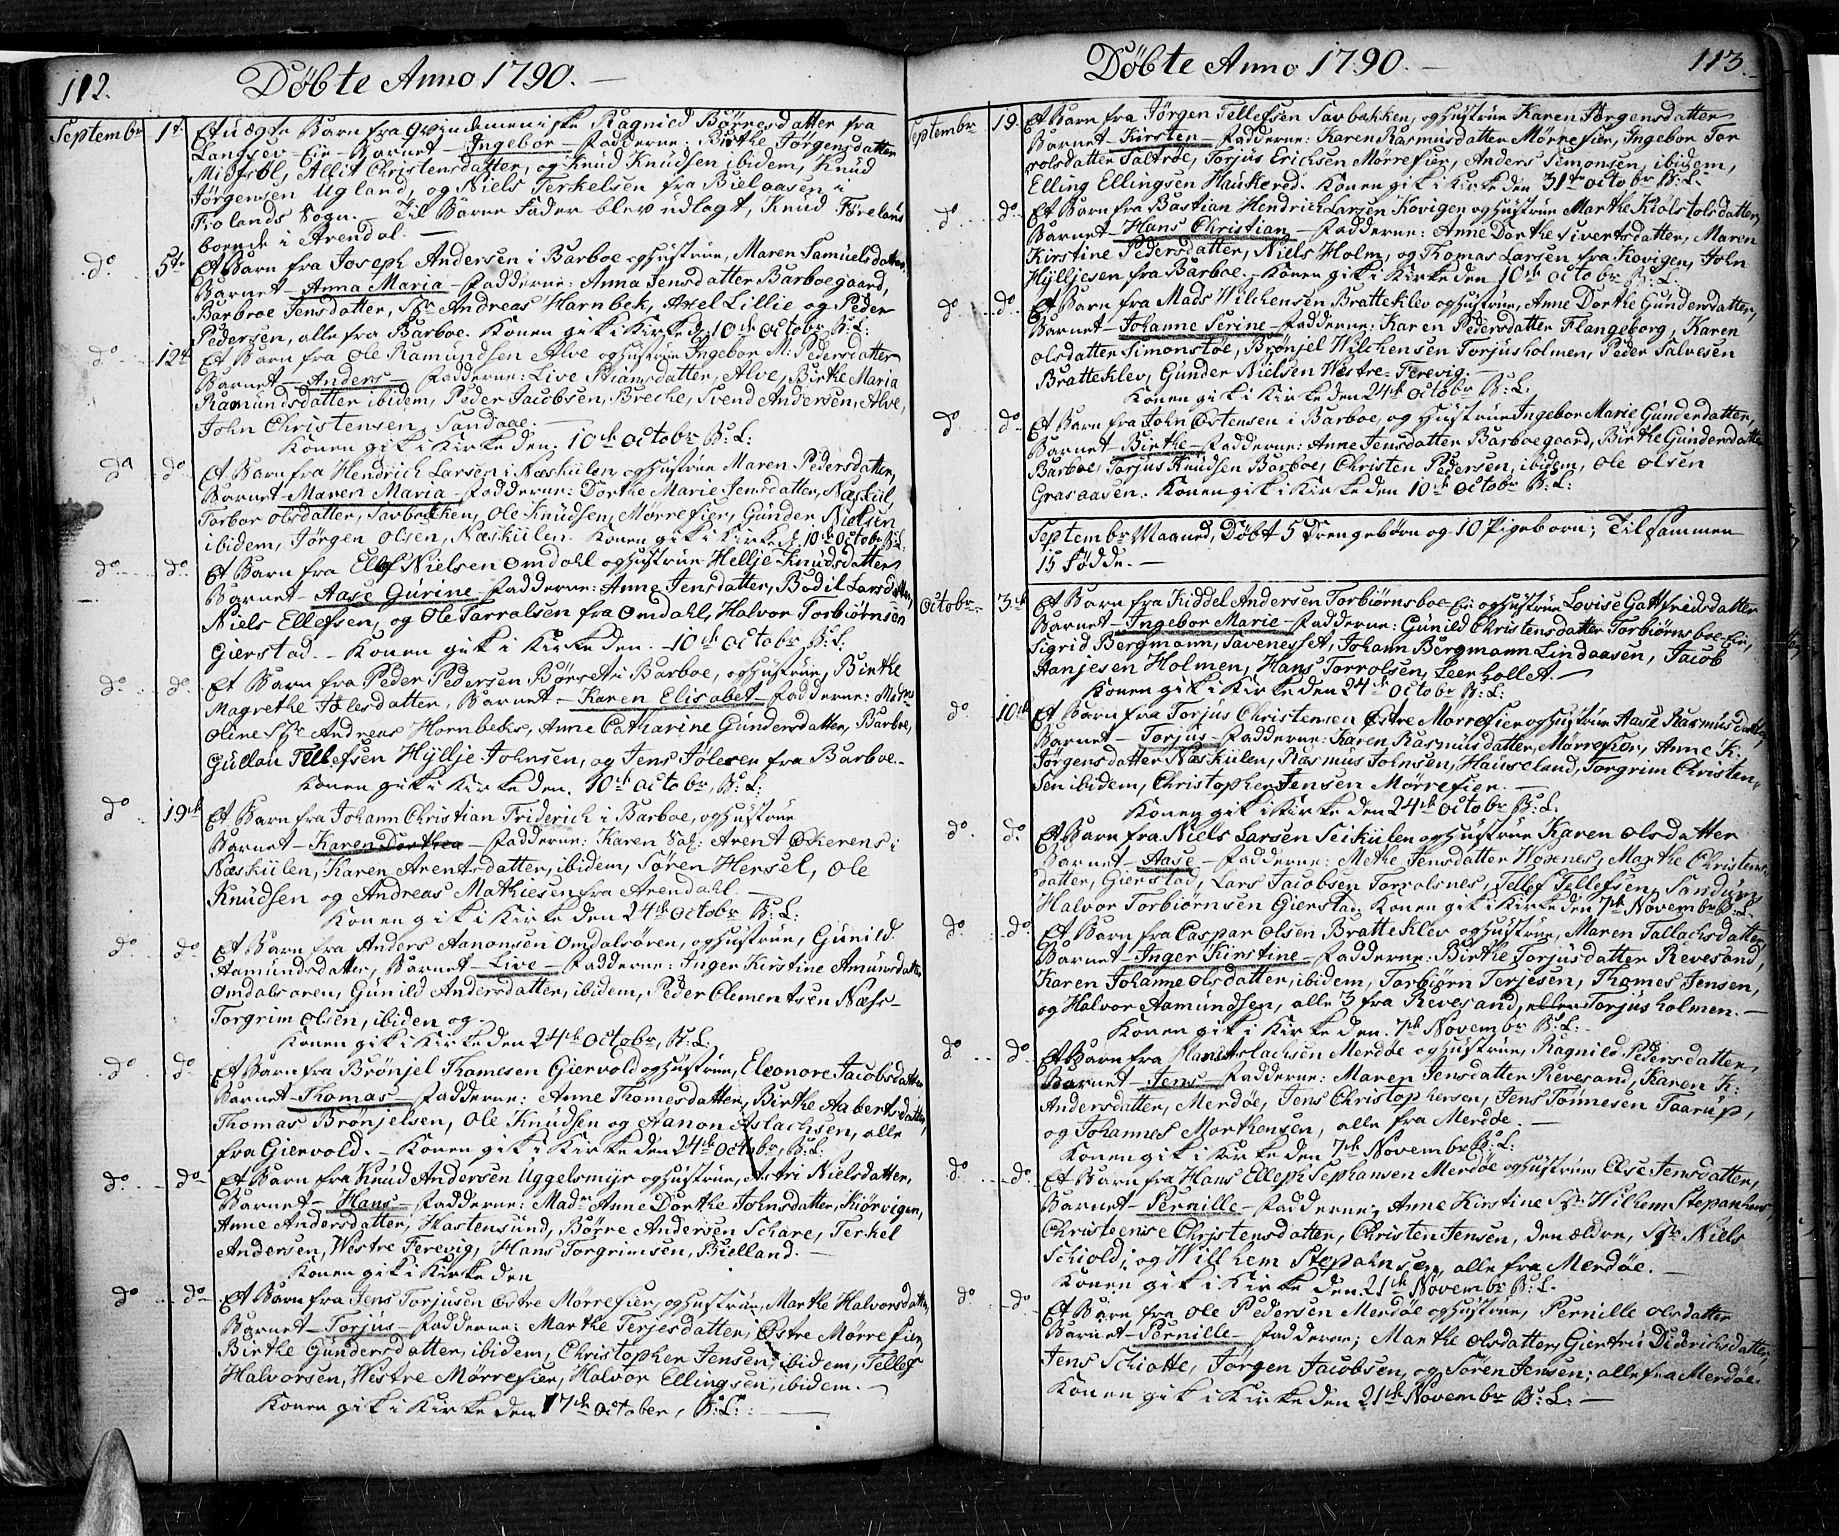 112.
Döbte Anno 1790. —
Septembr 1te Et uægte Barn fra Qvindemeniske Ragnild Börresdatter fra
Barnet — Ingebor — Fadderne: Birthe Jörgensdatter
Midtsöl, Allit Christensdatter, og Knud Knudsen ibidem, Knud
Jörgensen Ugland, og Niels Terkelsen fra Bielaasen i
Frolands Sogn. — Til Barne Fader blev udlagt, Knud
boende i Arendal. —
do 5te Et Barn fra Joseph Andersen i Barboe og hustrue, Maren Samuelsdatter
Barnet — Anna Maria — Fadderne: Anna Jensdatter Barboegaard,
Barbroe Jensdatter, Sr Andreas Harnbek, Axel Lillie og Peder
Pedersen, alle fra Barboe. Konen gik i Kirke d: 10de Octobr B: L:
do 12te Et Barn fra Ole Ramundsen Alve og hustrue Ingebor M: Pedersdatter
Barnet — Anders — Fadderne: Live Biámsdatter, Alve, Birthe Maria
Ramundsdatter ibidem, Peder Jacobsen, Breche, Svend Andersen, Alve,
John Christensen, Sandaae. —
Konen gik i Kirke den. 10de Octobr B: L:
do do Et Barn fra Hendrich Larsen i Næskiilen og hustrue Maren Pedersdatter,
Barnet — Maren Maria — Fadderne: Dorthe Marie Jensdatter, Næskiil,
Torbor Olsdatter, Savbækken, Ole Knudsen, Mörrefier, Gunder Nielsen
ibidem, Jörgen Olsen, Næskiilen. Konen gik i Kirke d. 10de Octobr B: L:
do do Et Barn fra Ellef Nielsen Omdahl og hustrue Hellje Knudsdatter
Barnet — Aase Gurine — Fadderne: Anne Jensdatter, Bodil Larsdatter,
Niels Ellefsen, og Ole Tarralsen fra Omdahl, Halvor Torbiörnsen
Gierstad. — Konen gik i Kirke den. 10de Octobr B: L:
do do Et Barn fra Peder Pedersen Börset i Barboe, og hustrue, Birthe
Magrethe Jölesdatter, Barnet — Karen Elisabet — Fadderne: Madm
Oline Sr Andreas Hornbeks, Anne Catharine Gundersdatter, Barboe,
Gullou Tellefsen Hyllje Johnsen, og Jens Jölesen fra Barboe. —
Konen gik i Kirke den. 10de Octobr, B: L:
do 19de Et Barn fra Johann Christian Friderich i Barboe, og hustrue
Barnet — Karen Dorthea — Fadderne: Karen Sal: Arent Ökerens i
Næskiilen, Karen Arentsdatter, ibidem, Sören Hersel, Ole
Knudsen og Andreas Mathiesen fra Arendahl. —
Konen gik i Kirke den 24de Octobr B: L:
do do Et Barn fra Anders Aanonsen Omdalsören, og hustrue, Gunild
Aamundsdatter, Barnet — Live — Fadderne: Inger Kirstine Amunsdatter
Omdalsoren, Gunild Andersdatter, ibidem, Peder Clementsen Næss —
Torgrim Olsen, ibiden og —
Konen gik i Kirke den 24de Octobr, B: L:
do do Et Barn fra Brönjel Thomesen Giervold og hustrue, Eleonore Jacobsdatter
Barnet — Thomas — Fadderne: Anne Thomesdatter, Birthe Aabertsdatter,
Thomas Brönjelsen, Ole Knudsen og Aanon Aslachsen, alle
fra Giervold. — Konen gik i Kirke den 24de Octobr, B: L:
do do Et Barn fra Knud Andersen Uggelsmyr og hustrue, Astri Nielsdatter,
Barnet — Hans — Fadderne: Madm Anne Dorthe Johnsdatter, Kiörvigen,
Anne Andersdatter, Hastensund, Börre Andersen Schare, Terkel
Andersen, Westre Ferevig, Hans Torgrimsen, Bielland. —
Konen gik i Kirke den
do do Et Barn fra Jens Torjusen Östre Mörrefier, og hustrue, Marthe Halvorsdatter,
Barnet — Torjus — Fadderne: Marthe Terjesdatter, Östre Mörrefier,
Birthe Gundersdatter, ibidem, Christopher Jensen, ibidem, Tellef
Halvorsen, Westre Mörrefier, Halvor Ellingsen, ibidem. —
Konen gik i Kirke den 17de October, B: L: —
Döbte Anno 1790. —
113.
Septembr. 19. Et Barn fra Jörgen Tellefsen Savbækken, og hustrue Karen Jörgensdatter
Barnet — Kirsten — Fadderne: Karen Rasmusdatter Mörrefier, Ingebor Tor
rolsdatter Saltröe, Torjus Erichsen Mörrefier, Anders Simonsen, ibidem,
Elling Ellingsen Haukered. Konen gik i Kirke den 31te Octobr B: L:
do do Et Barn fra Bastian Hendrich Larsen Kovigen og hustrue Marthe Kiolstolsdatter,
Barnet — Hans Christian — Fadderne: Anne Dorthe Sivertsdatter, Maren
Kirstine Pedersdatter, Niels Holm, og Thomas Larsen fra Kovigen, John
Hylljesen fra Barboe. — Konen gik i Kirke den 10de Octobr B: L:
do do Et Barn fra Mads Wilchensen Bratteklev og hustrue, Anne Dorthe Gundersdatter,
Barnet — Johanne Serine — Fadderne: Karen Pedersdatter Flangeborg, Karen
Olsdatter Simonstöe, Brönjel Wilchensen Torjusholmen, Peder Salvesen
Bratteklev, Gunder Nielsen Westre-Ferevig. —
Konen gik i Kirke den 24de Octobr B: L:
do do Et Barn fra John Östensen i Barboe, og hustrue Ingebor Marie Gunderdatter,
Barnet — Birthe — Fadderne: Anne Jensdatter Barboegaard, Birthe Gundersdatter
Barboe, Torjus Knudsen Barboe, Christen Pedersen, ibidem, Ole Olsen
Grasaasen. Konen gik i Kirke den 10de Octobr B: L:
Septembr Maaned, Döbt 5 Drengebörn og 10 Pigeborn; Tilsammen
15 Födde. —
Octobr. 3de Et Barn fra Kiddel Andersen Torbiörnsboe-Eie og hustrue Lovise Gottfridsdatter
Barnet — Ingebor Marie — Fadderne: Gunild Christensdatter Torbiörnsboe-Eie,
Sigrid Bergmann, Savenesset, Johann Bergmann Lindaasen, Jacob
Hanjesen Holmen, Hans Torrolsen, Leerhollet. —
Konen gik i Kirke den 24de Octobr B: L:
do 10de Et Barn fra Torjus Christensen Östre Mörrefier og hustrue Aase Rasmusdatter
Barnet — Torjus — Fadderne: Karen Rasmusdatter, Mörrefier, Anne K:
Jörgensdatter Næskiilen, Rasmus Johnsen, Hauseland, Torgrim Christen,
sen ibidem, Christopher Jensen Mörrefier. —
Konen gik i Kirke den 24de Octobr B: L:
do do Et Barn fra Niels Larsen Seikiilen og hustrue Karen Olsdatter
Barnet — Aase — Fadderne: Methe Jensdatter Woxnes, Marthe Christens
datter, Gierstad, Lars Jacobsen Torrolsnes, Tellef Tellefsen, Sandum,
Halvor Torbiörnsen Gierstad. Konen gik i Kirke den 7de Novembr B: L:
do do Et Barn fra Caspar Olsen Bratteklev og hustrue, Maren Tallachsdatter
Barnet — Inger Kirstine — Fadderne: Birthe Torjusdatter Revesand,
Karen Johanne Olsdatter, ibidem, Torbiörn Terjesen, Thomes Jensen,
og Halvor Aamundsen, alle 3 fra Revesand, Torjusholmen. —
Konen gik i Kirke den. 7de Novembr B: L: —
do do Et Barn fra Hans Aslachsen Merdöe og hustrue, Ragnild Pedersdatter,
Barnet — Jens — Fadderne: Maren Jensdatter Revesand, Karen K:
Andersdatter, Merdöe, Jens Christophersen, Jens Tönnesen Taarup,
og Johannes Marthensen, alle fra Merdöe. —
Konen gik i Kirke den 7de Novembr B: L:
do do Et Barn fra Hans Elleph Sephansen Merdöe og hustrue, Else Jensdatter,
Barnet — Pernille — Fadderne; Anne Kirstine Sr: Wilhem Stepanhens,
Christeense Christensdatter, Christen Jensen, den ældre, Sr: Niels
Schiold; og Willhem Stepahnsen, alle fra Merdöe. —
Konen gik i Kirke den 21de Novembr B: L:
do do Et Barn fra Ole Pedersen Merdöe og hustrue, Pernille Olsdatter
Barnet — Pernille — Fadderne; Marthe Olsdatter, Giertru Didrichsdatter,
Jens Schiotte, Jörgen Jacobsen, og Sören Jensen; alle fra Merdöe.
Konen gik i Kirke den 21de Novembr B: L: —